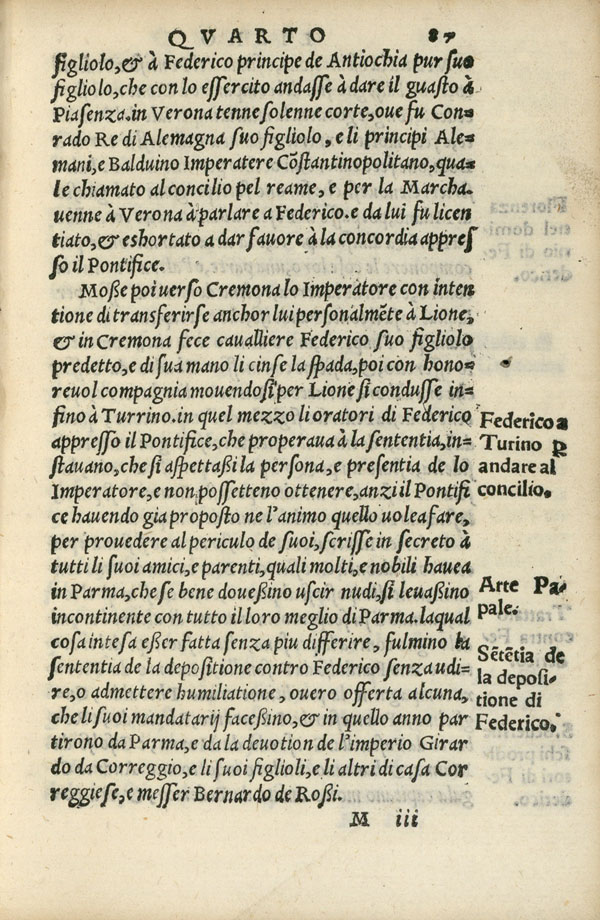 QVARTO 87
figliolo, & à Federico principe de Antiochia pur suo
figliolo, che con lo essercito andasse à dare il guasto à
Piasenza. in Verona tenne solenne corte, oue fu Con=
rado Re di Alemagna suo figliolo, e li principi Ale=
mani, e Balduino Imperatere Cõstantinopolitano, qua=
le chiamato al concilio pel reame, e per la Marcha
uenne à Verona à parlare a Federico. e da lui fu licen
tiato, & eshortato a dar fauore à la concordia appres
so il Pontifice.
Moße poi uerso Cremona lo Imperatore con inten
tione di transferirse anchor lui personalmẽte à Lione,
& in Cremona fece caualliere Federico suo figliolo
predetto, e di sua mano li cinse la spada, poi con hono=
reuol compagnia mouendosi per Lione si condusse in=
fino à Turrino. in quel mezzo li oratori di Federico
appresso il Pontifice, che properaua à la sententia, in=
stauano, che si aspettaßi la persona, e presentia de lo
Imperatore, e non possetteno ottenere, anzi il Pontifi
ce hauendo gia proposto ne l'animo quello uolea fare,
per prouedere al periculo de suoi, scrisse in secreto à
tutti li suoi amici, e parenti, quali molti, e nobili hauea
in Parma, che se bene doueßino uscir nudi, si leuaßino
incontinente con tutto il loro meglio di Parma. laqual
cosa intesa eßer fatta senza piu differire, fulmino la
sententia de la depositione contro Federico senza udi=
re, o admettere humiliatione, ouero offerta alcuna,
che li suoi mandatarij faceßino, & in quello anno par
tirono da Parma, e da la deuotion de l'imperio Girar
do da Correggio, e li suoi figlioli, e li altri di casa Cor
reggiese, e messer Bernardo de Roßi.
M iii
Federico a
Turino ꝑ
andare al
concilio.
Arte Pa=
pale.
Sẽtẽtia de
la deposi=
tione di
Federico.